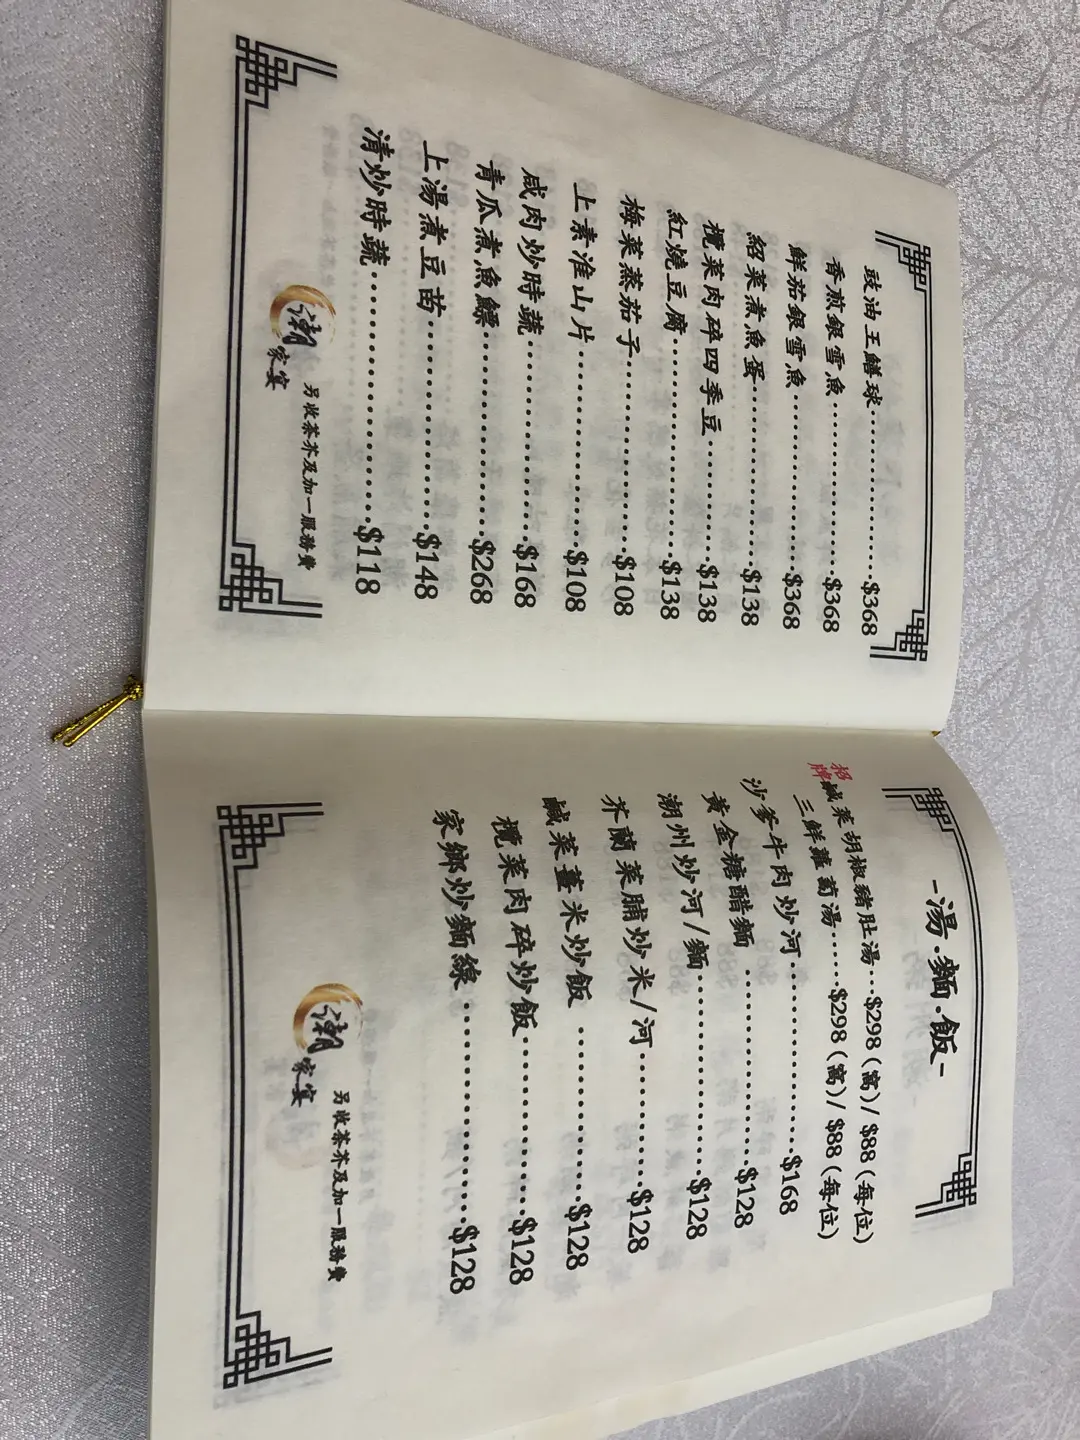 豉油王鱔球..............$368
香煎銀雪魚..............$368
鮮茄銀雪魚..............$368
紹菜煮魚蛋..............$138
欖菜肉碎四季豆..........$138
紅燒豆腐................$138
梅菜蒸茄子..............$108
上素淮山片..............$108
咸肉炒時蔬..............$168
青瓜煮魚鰾..............$268
上湯煮豆苗..............$148
清炒時蔬................$118
潮
家宴
另收茶芥及加一服務費
-湯·麵·飯-
招牌
鹹菜胡椒豬肚湯...$298(窩)/ $88(每位)
三鮮蘿蔔湯......$298(窩)/ $88(每位)
沙爹牛肉炒河..............$168
黃金糖醋麵 ..............$128
潮州炒河/麵..............$128
芥蘭菜脯炒米/河..........$128
鹹菜薑米炒飯 ............$128
欖菜肉碎炒飯............$128
家鄉炒麵線 ..............$128
潮
家宴
另收茶芥及加一服務費